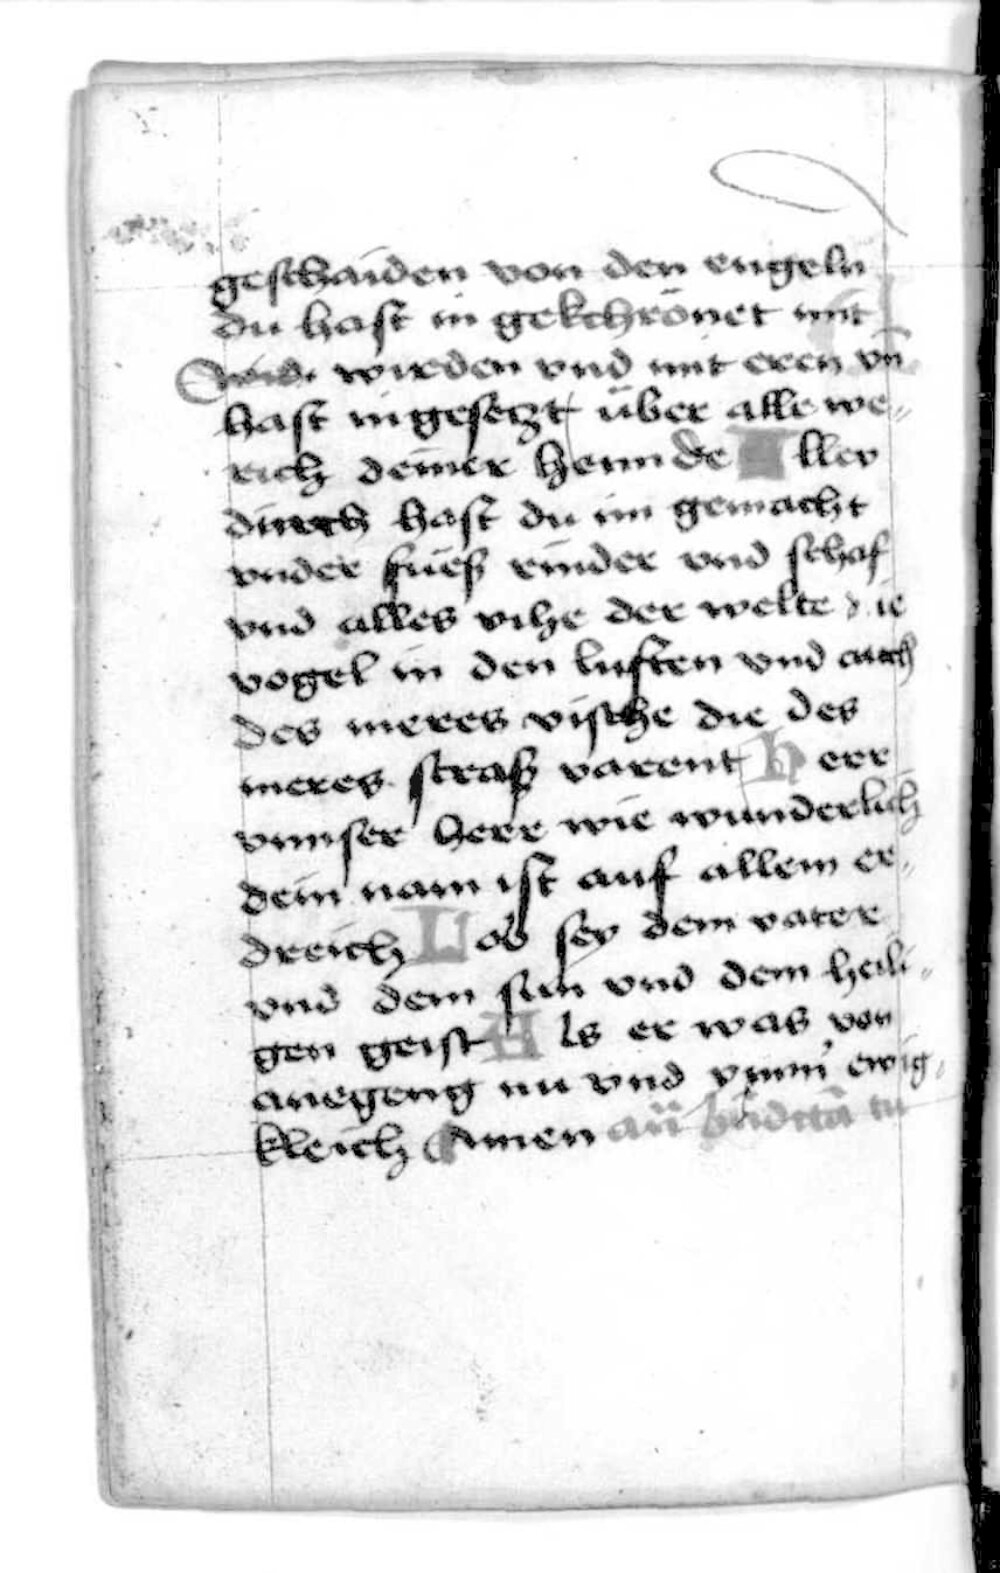 geschaiden von den engeln
du hast in gekchrönet mit
wirden vnd mit eren vn̄
hast in gesetzt über alle we-
rich deiner hennde Aller
dinch hast du im gemacht
vnder fuess rinder vnd schaf
vnd alles vihe der welte die
vogel in den luften vnd auch
des meres vische die des
meres strass varent herr
vnnser herr wie wunderlich
dein nam ist auf allem er-
dreich Lob sey dem vater
vnd dem sun vnd dem heili-
gen geist Als er was von
anegeng nu vnd ymm̄ ewig-
kleich Amen an̄ b̄ndcta tu